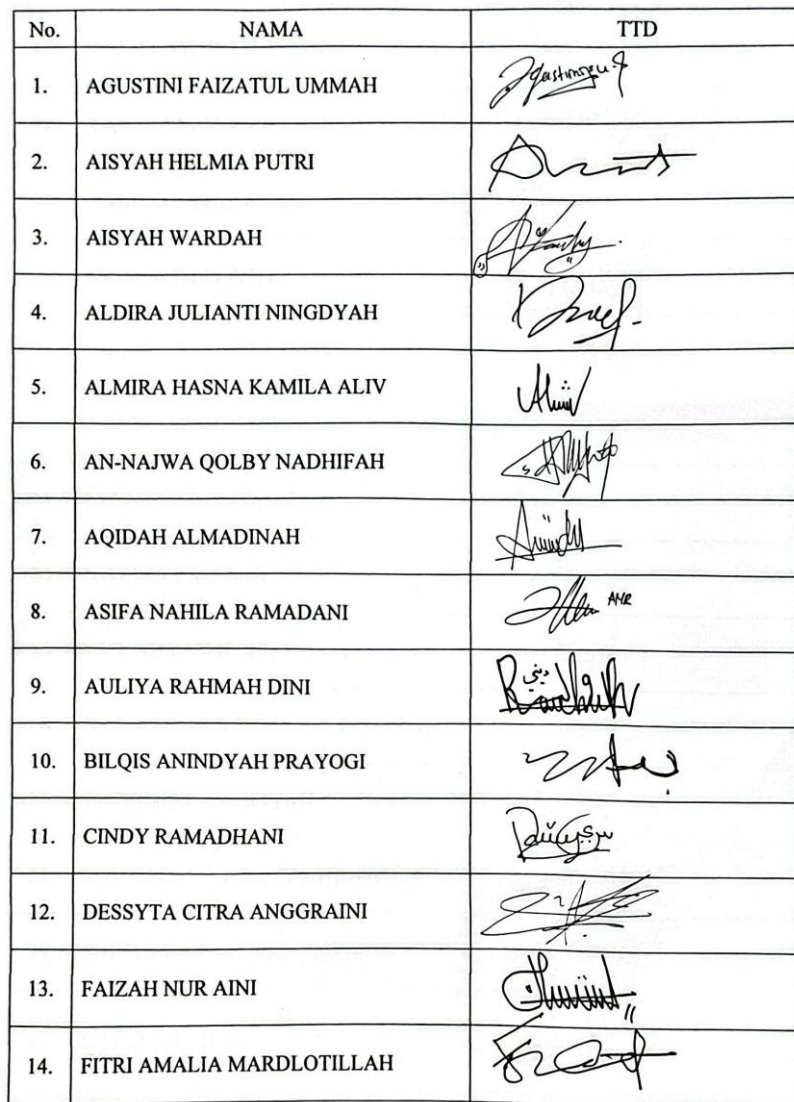 No. NAMA TTD
1. AGUSTINI FAIZATUL UMMAH
2. AISYAH HELMIA PUTRI
3. AISYAH WARDAH
4. ALDIRA JULIANTI NINGDYAH
5. ALMIRA HASNA KAMILA ALIV
6. AN-NAJWA QOLBY NADHIFAH
7. AQIDAH ALMADINAH
8. ASIFA NAHILA RAMADANI ANR
9. AULIYA RAHMAH DINI
10. BILQIS ANINDYAH PRAYOGI
11. CINDY RAMADHANI
12. DESSYTA CITRA ANGGRAINI
13. FAIZAH NUR AINI
14. FITRI AMALIA MARDLOTILLAH